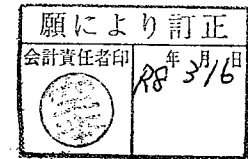 願により訂正
会計責任者印
R8年3月16日